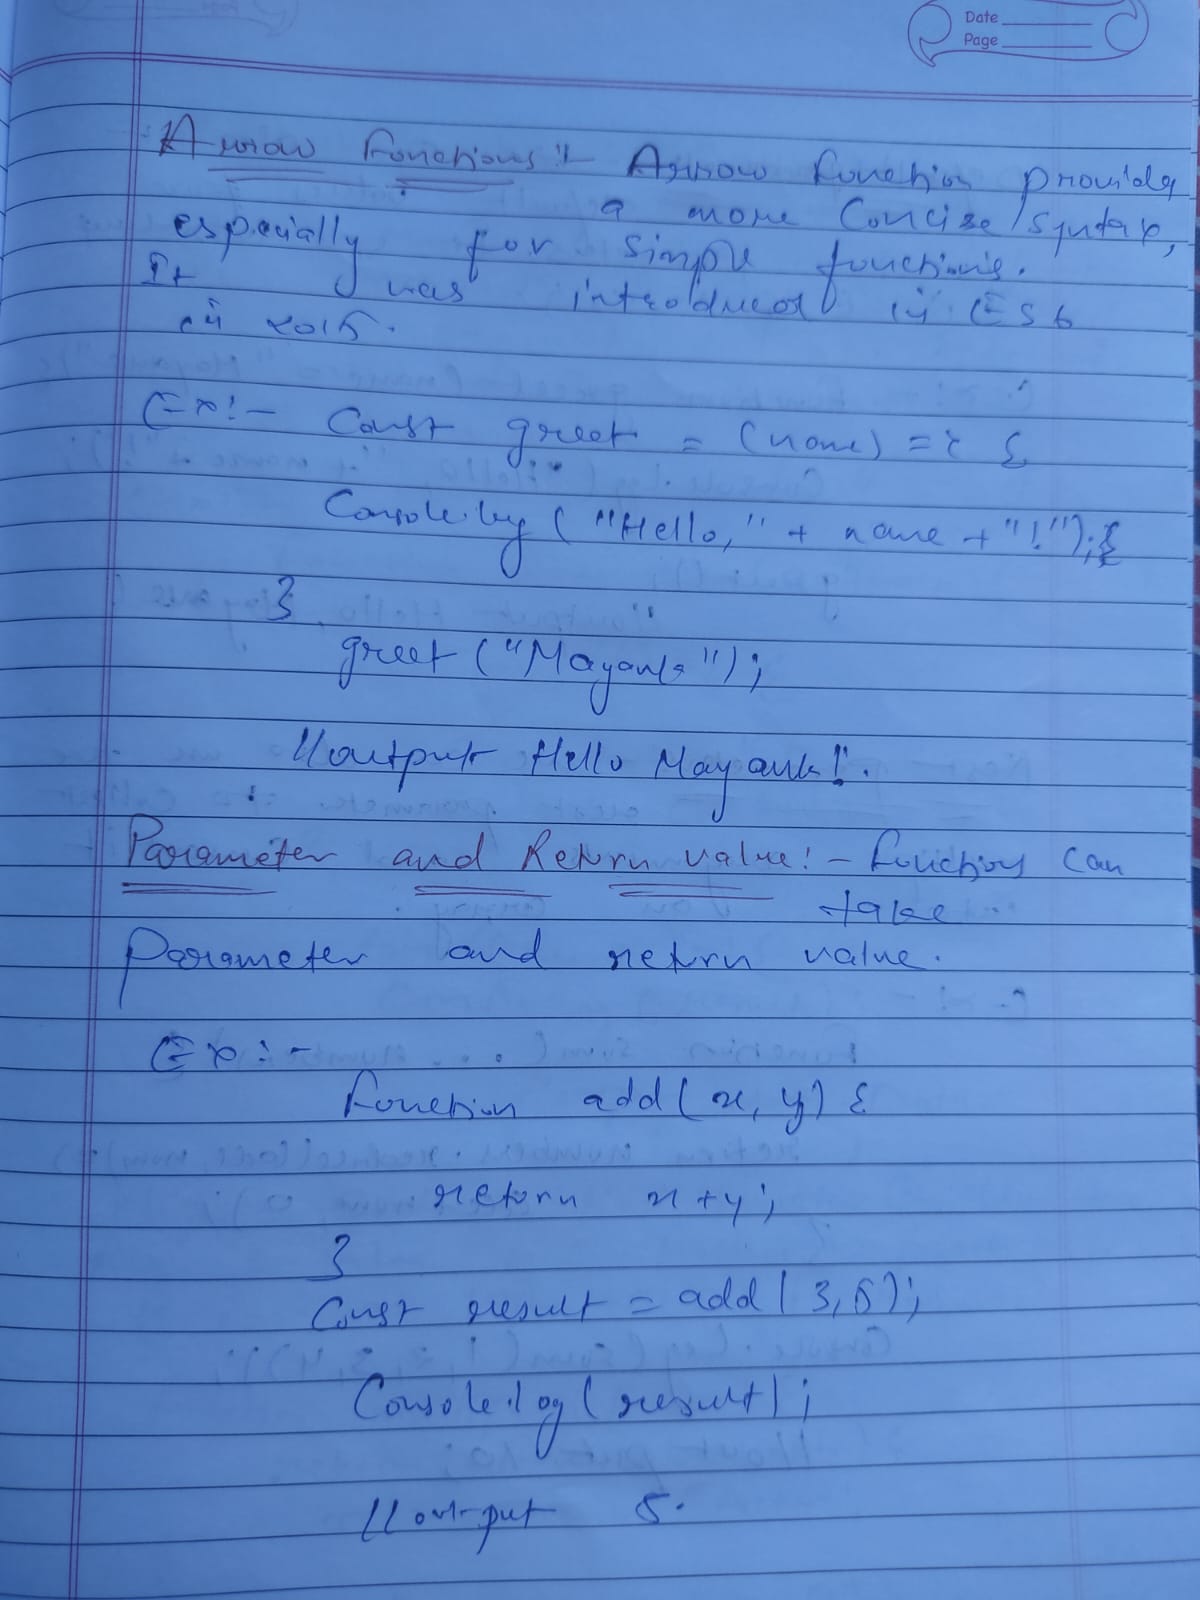 Date
Page
Arrow Functions :- Arrow function provides
a more Concise syntax,
especially for simple functions.
It was introduced in ES6
in 2015.
Ex:- Const greet = (name) => {
Console.log ("Hello," + name + "!");
}
greet ("Mayank");
//output Hello Mayank!.
Parameter and Return value:- Functions can
take
Parameter and return value.
Ex:-
Function add(x, y) {
return x+y;
}
Const result = add(3,5);
Console.log(result);
//output 5.